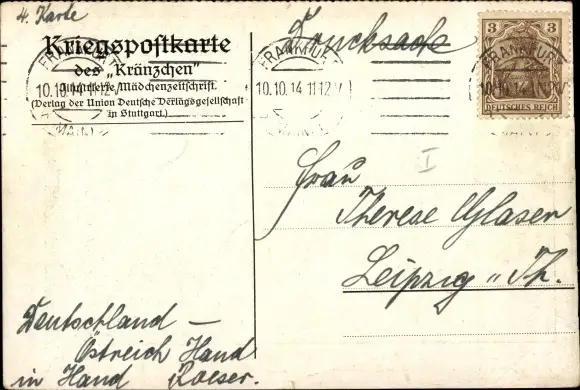 4. Karte
Drucksache
Kriegspostkarte
des „Kränzchen“
Illustrierte Mädchenzeitschrift.
(Verlag der Union Deutsche Verlagsgesellschaft
in Stuttgart.)
FRANKFURT
10.10.14 11-12 V
(MAIN)
FRANKFURT
10.10.14 11-12 V
(MAIN)
FRANKFURT
10.10.14
3 3
DEUTSCHES REICH
I
Frau
Therese Glaser
Leipzig - Th.
Deutschland —
Östreich Hand
in Hand Roeser.